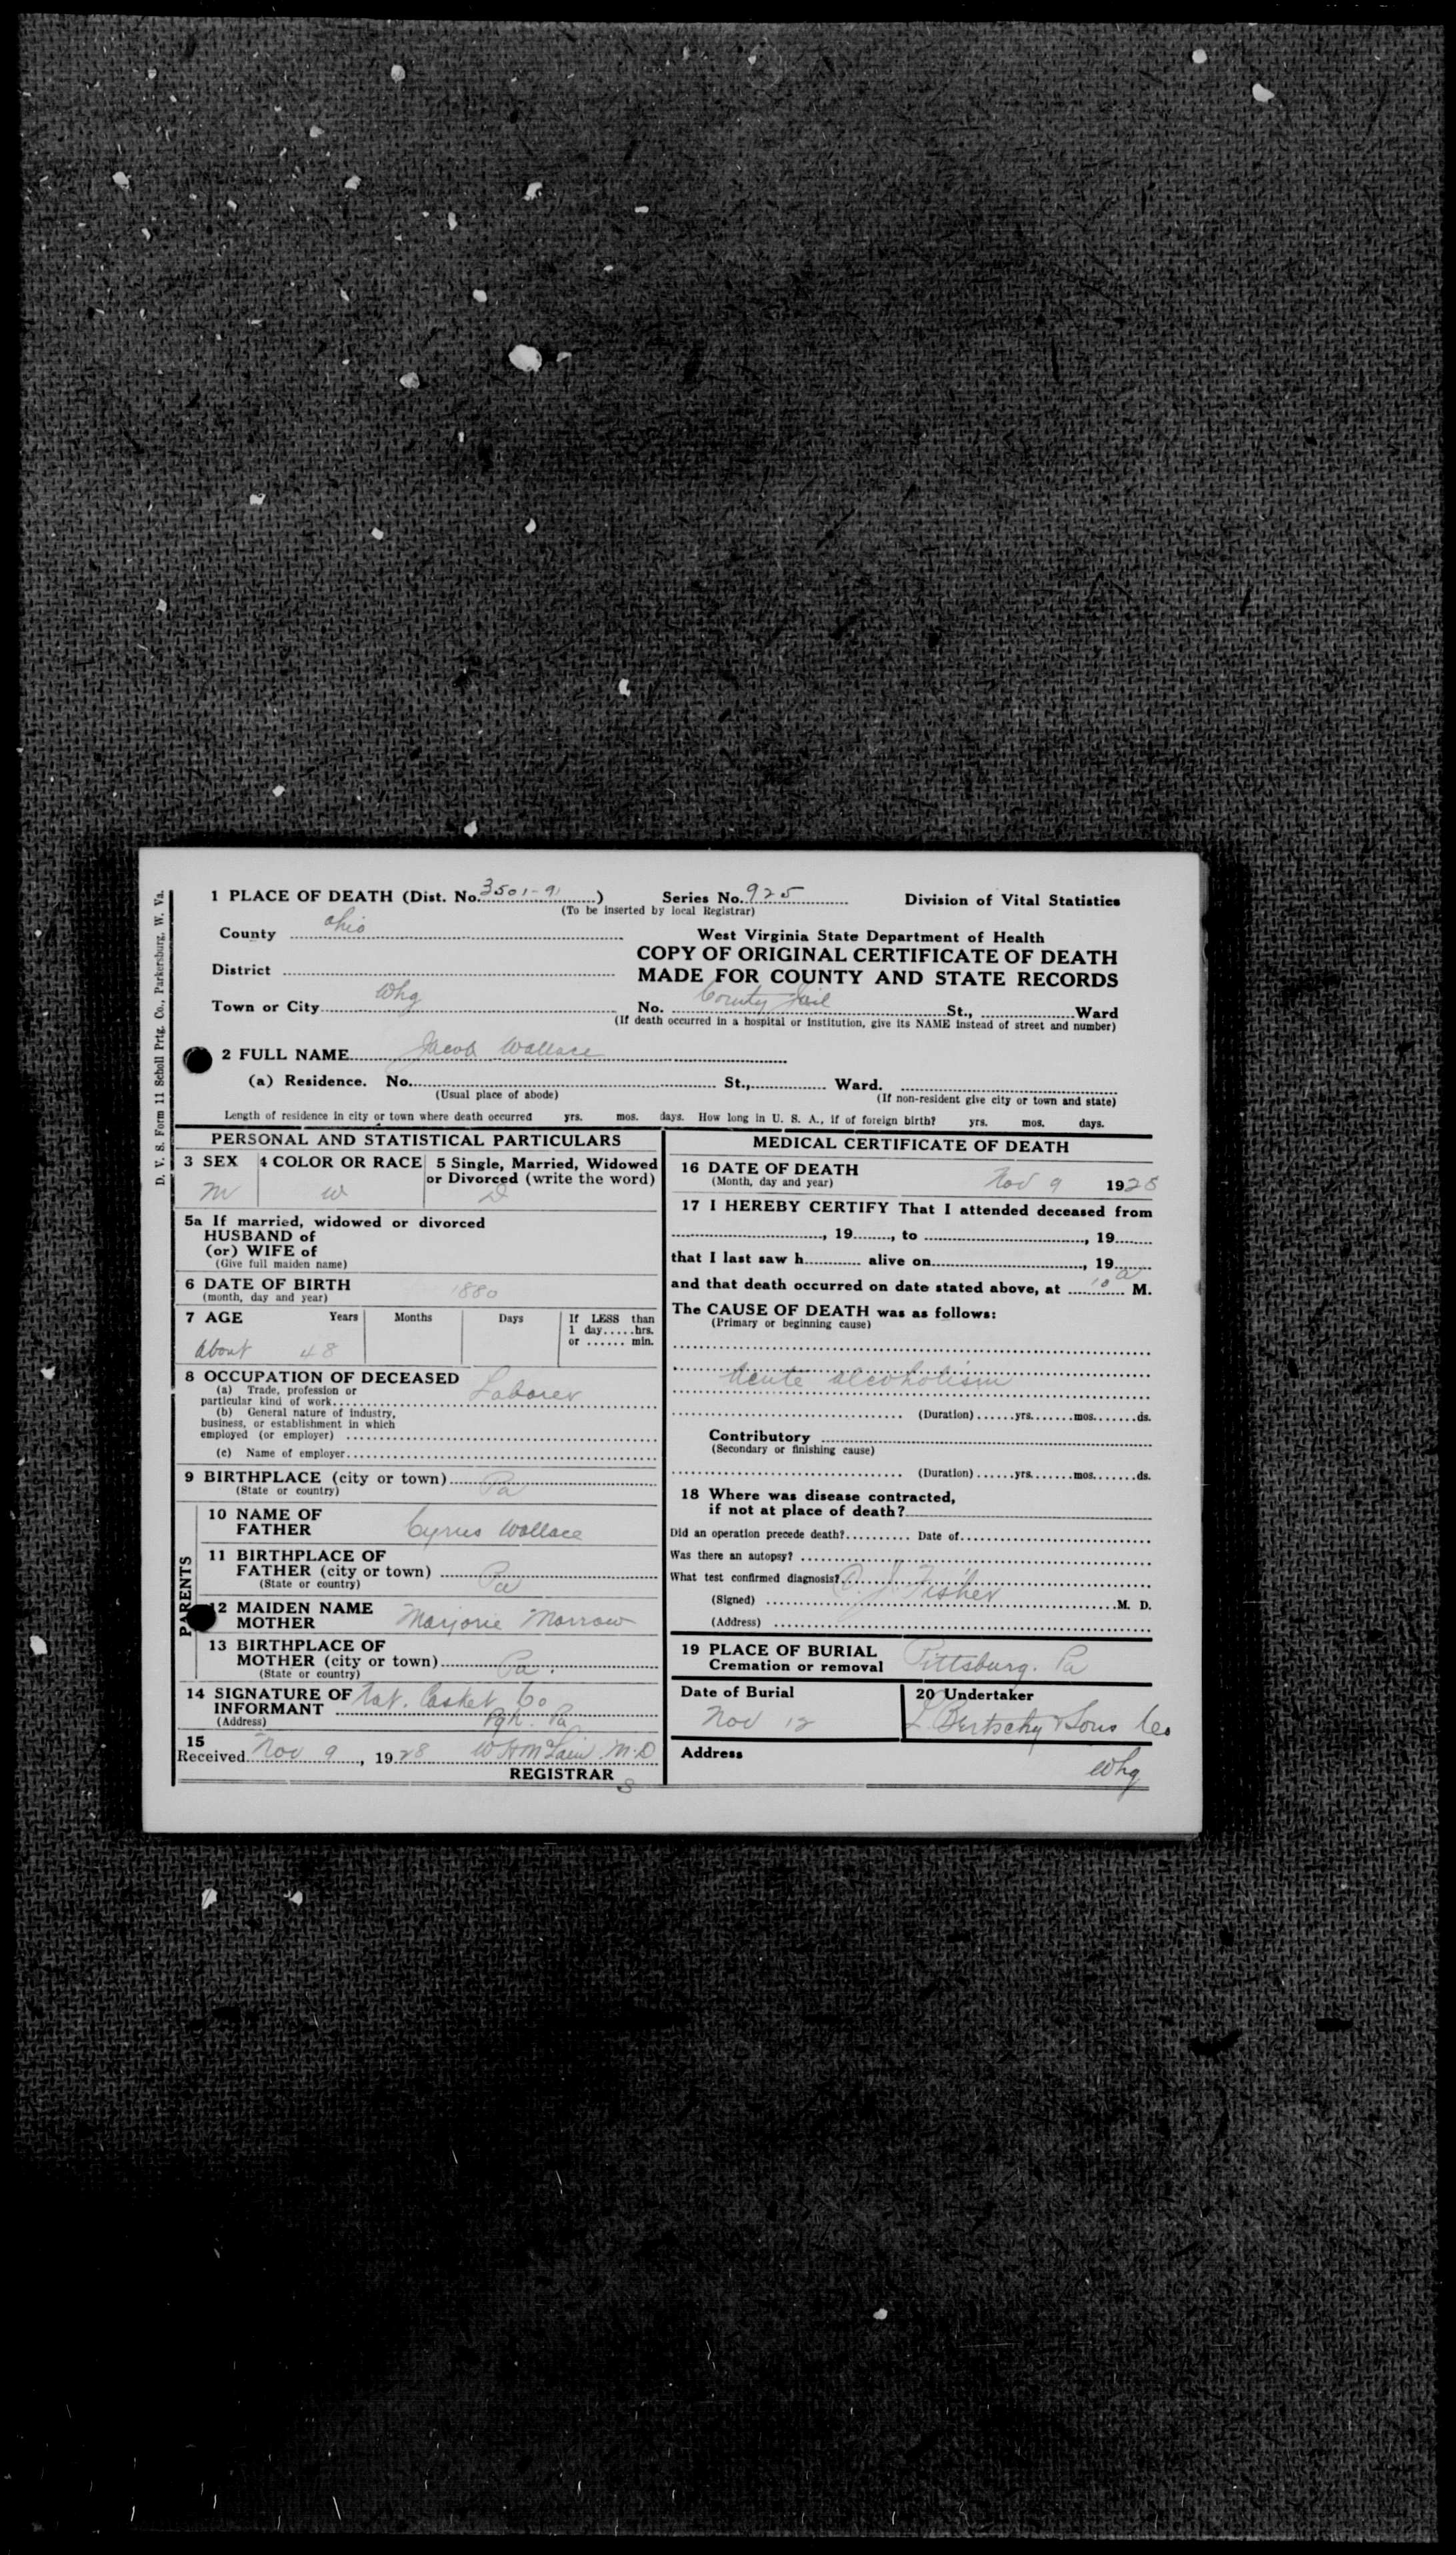 D. V. S. Form 11 Scholl Prtg. Co., Parkersburg, W. Va.
1 PLACE OF DEATH (Dist. No. 3501-91) Series No. 925 Division of Vital Statistics
(To be inserted by local Registrar)
County Ohio West Virginia State Department of Health
COPY OF ORIGINAL CERTIFICATE OF DEATH
District MADE FOR COUNTY AND STATE RECORDS
Town or City Whg No. County Jail St., Ward
(If death occurred in a hospital or institution, give its NAME instead of street and number)
2 FULL NAME Jacob Wallace
(a) Residence. No. St., Ward.
(Usual place of abode) (If non-resident give city or town and state)
Length of residence in city or town where death occurred yrs. mos. days. How long in U. S. A., if of foreign birth? yrs. mos. days.
PERSONAL AND STATISTICAL PARTICULARS
3 SEX 4 COLOR OR RACE 5 Single, Married, Widowed
or Divorced (write the word)
M W D
5a If married, widowed or divorced
HUSBAND of
(or) WIFE of
(Give full maiden name)
6 DATE OF BIRTH 1880
(month, day and year)
7 AGE Years Months Days If LESS than
1 day.....hrs.
or ...... min.
About 48
8 OCCUPATION OF DECEASED Laborer
(a) Trade, profession or
particular kind of work
(b) General nature of industry,
business, or establishment in which
employed (or employer)
(c) Name of employer
9 BIRTHPLACE (city or town) Pa
(State or country)
PARENTS
10 NAME OF
FATHER Cyrus Wallace
11 BIRTHPLACE OF
FATHER (city or town) Pa
(State or country)
12 MAIDEN NAME
MOTHER Marjorie Morrow
13 BIRTHPLACE OF
MOTHER (city or town) Pa.
(State or country)
14 SIGNATURE OF Nat. Casket Co
INFORMANT
(Address) Pgh. Pa
15
Received Nov 9, 1928 W H McLain M.D
REGISTRAR
S
MEDICAL CERTIFICATE OF DEATH
16 DATE OF DEATH
(Month, day and year) Nov 9 1928
17 I HEREBY CERTIFY That I attended deceased from
, 19......, to , 19......
that I last saw h alive on , 19......
and that death occurred on date stated above, at 10 a M.
The CAUSE OF DEATH was as follows:
(Primary or beginning cause)
Acute alcoholism
(Duration) yrs. mos. ds.
Contributory
(Secondary or finishing cause)
(Duration) yrs. mos. ds.
18 Where was disease contracted,
if not at place of death?
Did an operation precede death? Date of
Was there an autopsy?
What test confirmed diagnosis?
(Signed) J Fisher M. D.
(Address)
19 PLACE OF BURIAL
Cremation or removal Pittsburg. Pa
Date of Burial 20 Undertaker
Nov 12 L. Bertschy & Sons Co
Address Whg